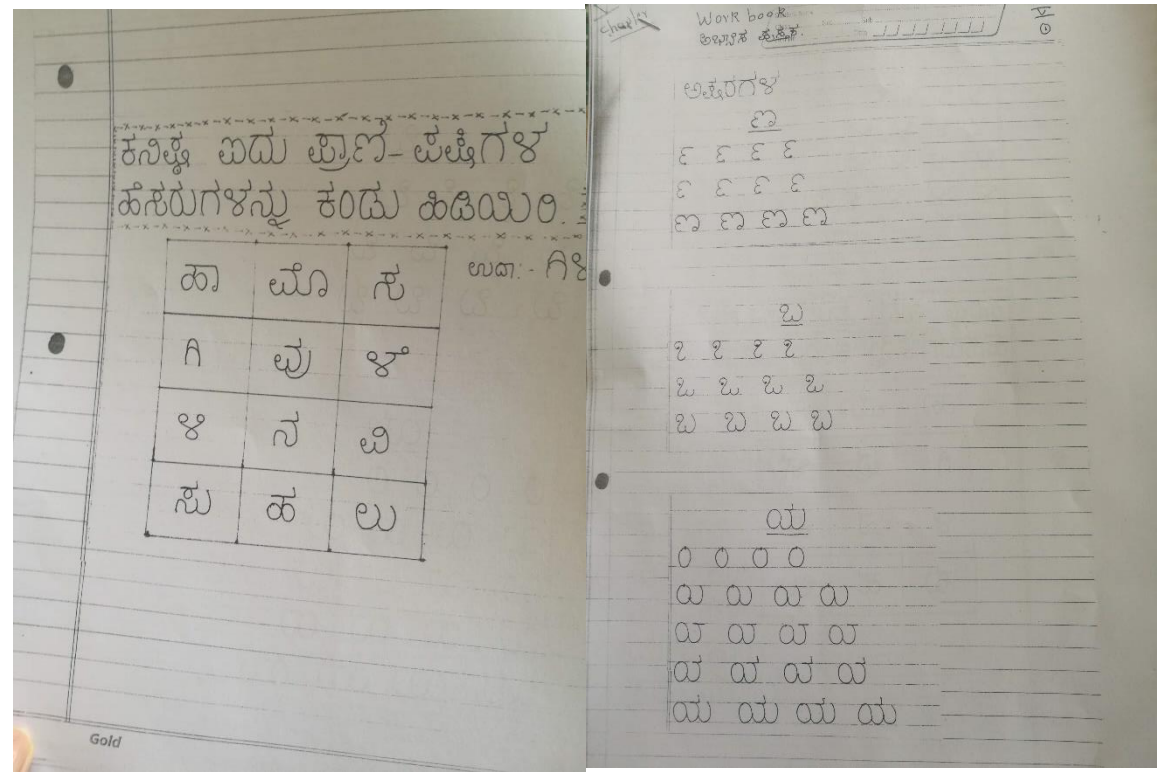 ಕನಿಷ್ಠ ಐದು ಪ್ರಾಣಿ-ಪಕ್ಷಿಗಳ
ಹೆಸರುಗಳನ್ನು ಕಂಡು ಹಿಡಿಯಿರಿ.
ಉದಾ:- ಗಿಳಿ
ಹಾ ಮೊ ಸ
ಗಿ ವು ಳೆ
ಳಿ ನ ವಿ
ಸು ಹ ಲು
Gold
Work book
ಅಭ್ಯಾಸ ಪುಸ್ತಕ.
V
ಅಕ್ಷರಗಳ
ಣ
ಣ ಣ ಣ ಣ
ಬ
ಒ ಒ ಒ ಒ
ಬ ಬ ಬ ಬ
ಯ
೦ ೦ ೦ ೦
ಯ ಯ ಯ ಯ